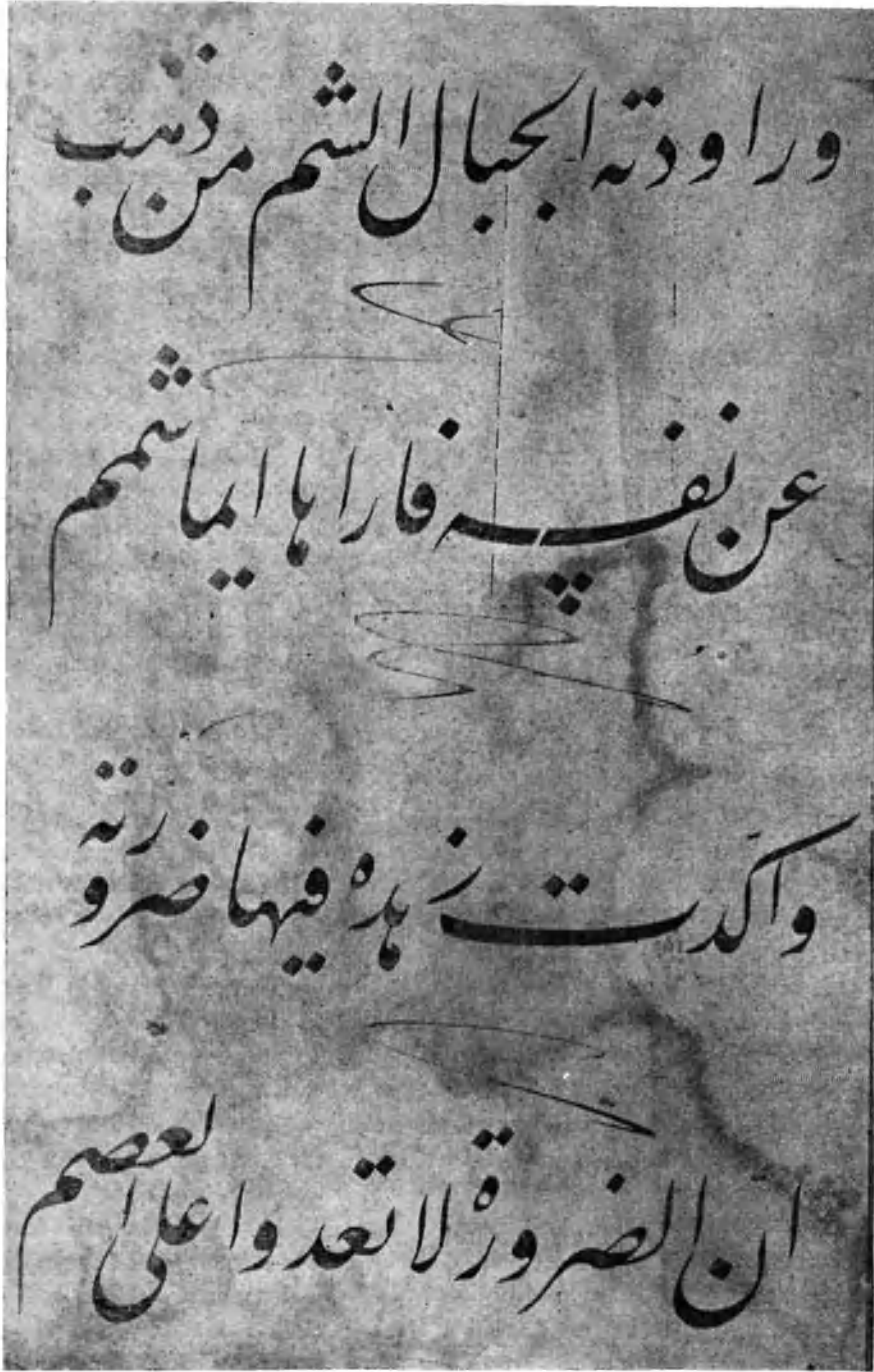 وراودته الجبال الشم من ذهب
عن نفسه فاراها ایما شمم
واکدت زهده فیها ضرورته
ان الضرورة لا تعدوا علی العصم